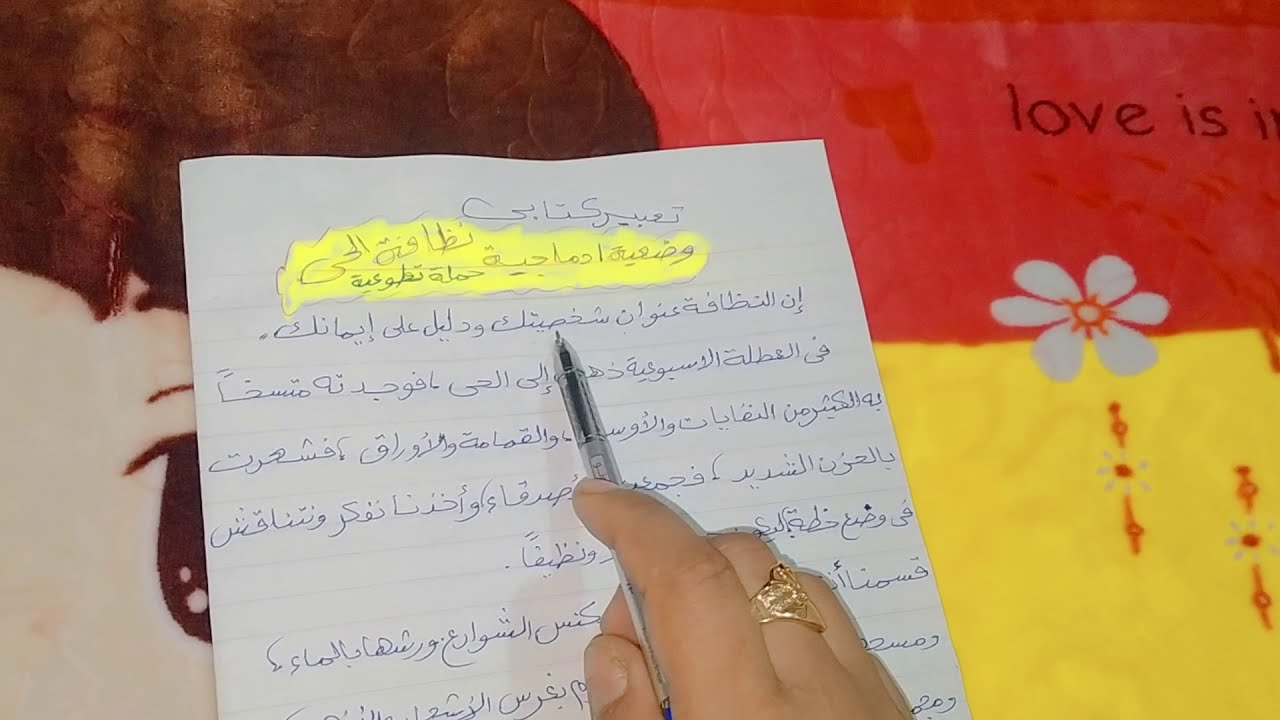 love is
تعبير كتابي
وضعية ادماجية نظافة الحي
حملة تطوعية
إن النظافة عنوان شخصيتك ودليل على إيمانك.
في العطلة الاسبوعية إلى الحي، فوجدته متسخاً
به الكثير من النفايات والقمامة والأوراق، فشعرت
بالحزن الشديد، أصدقاء، وأخذنا نفكر ونتناقش
في وضع خطة ونظيفاً.
قسمنا
كنس الشوارع ورشها بالماء،
بغرس